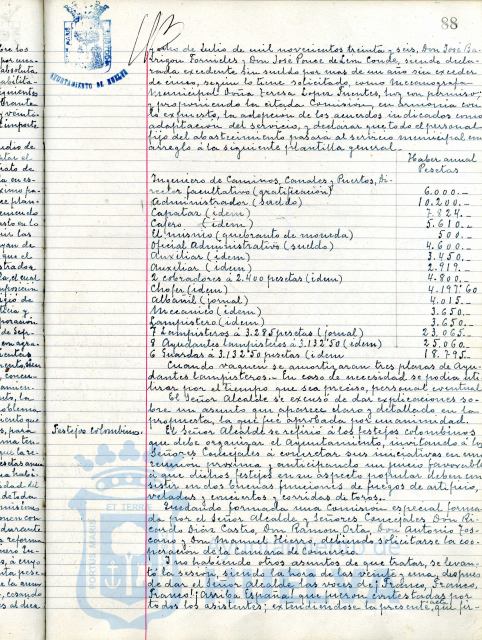 88
AYUNTAMIENTO DE HUELVA
y ocho de Julio de mil novecientos treinta y seis, Don José Ba-
rrigon Fornieles y Don José Ponce de Leon Conde, siendo decla-
rada excedente sin sueldo por mas de un año sin exceder
de cinco, segun lo tiene solicitado, como Mecanografa
Municipal Doña Teresa Lopez Fuentes, hoy con permiso;
y proponiendo la citada Comisión, en armonia con
lo expuesto, la adopcion de los acuerdos indicados como
adaptacion del servicio, y declarar que todo el personal
fijo del abastecimiento pasará al servicio municipal con
arreglo á la siguiente plantilla general.
Haber anual
Pesetas
Ingeniero de Caminos, Canales y Puertos, Di-
rector facultativo (gratificación) 6.000.-
Administrador (sueldo) 10.200.-
Capataz (idem) 7.824.-
Cajero (idem) 5.610.-
El mismo (quebranto de moneda) 500.-
Oficial Administrativo (sueldo) 4.600.-
Auxiliar (idem) 3.450.-
Auxiliar (idem) 2.919.-
2 cobradores á 2.400 pesetas (idem) 4.800.-
Chofer (idem) 4.197'60
Albañil (jornal) 4.015.-
Mecanico (idem) 3.650.-
Lampistero (idem) 3.650.-
7 Lampisteros á 3.285 pesetas (jornal) 23.065.-
8 Ayudantes lampisteros á 3.132'50 (idem) 25.060.-
6 Guardas á 3.132'50 pesetas (idem 18.795.-
Cuando vaquen se amortizaran tres plazas de Ayu-
dantes lampisteros.- En caso de necesidad se podrá uti-
lizar por el tiempo que sea preciso, personal eventual.
El Señor Alcalde se excusó de dar explicaciones so-
bre un asunto que aparece claro y detallado en la
propuesta, la qué fué aprobada por unanimidad.
Festejos colombinos.
El Señor Alcalde se refirió á los festejos colombinos
que debe organizar el Ayuntamiento, invitando á los
Señores Concejales á concretar sus iniciativas en una
reunion proxima y anticipando un juicio favorable
á que dichos festejos en su aspecto popular deben con-
sistir en dos buenas funciones de fuegos de artificio,
veladas y conciertos y corridas de toros.
Quedando formada una Comisión especial forma-
da por el Señor Alcalde y Señores Concejales Don Ri-
cardo Diaz Castro, Don Ramon Orta, Don Antonio Tos-
cano y Don Manuel Hierro, debiendo solicitarse la coo-
peración de la Camara de Comercio.
Y no habiendo otros asuntos de que tratar, se levan-
tó la sesion, siendo la hora de las veinte y una, despues
de dar el Señor Alcalde las voces de ¡Franco, Franco,
Franco! ¡Arriba España! que fueron contestadas por
todos los asistentes; extendiendose la presente, que fir-